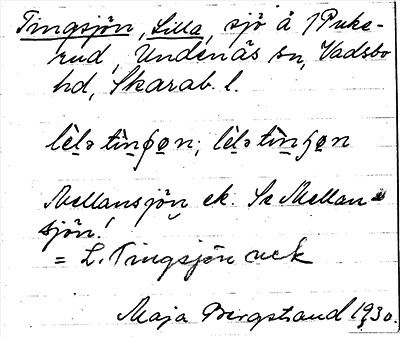 Tingsjön, Lilla, sjö å 1 Puke-
rud, Undenäs sn, Vadsbo
hd, Skarab. l.
lèlə tìnʃøn; lèlə tìnʃøn
Mellansjön ek. Se Mellan-
sjön!
= L. Tingsjön uek
Maja Bergstrand 1930.